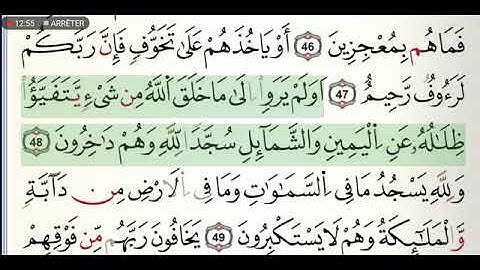 12:55 ARRÊTER
فَمَاهُم بِمُعْجِزِينَ 46 أَوْ يَاخُذَهُمْ عَلَىٰ تَخَوُّفٍ فَإِنَّ رَبَّكُمْ
لَرَءُوفٌ رَّحِيمٌ 47 اَوَلَمْ يَرَوِاْ اِلَىٰ مَا خَلَقَ اَللَّهُ مِن شَےْءٍ يَتَفَيَّؤُاْ
ظِلَٰلُهُۥ عَنِ اِلْيَمِينِ وَالشَّمَآئِلِ سُجَّداً لِلهِ وَهُمْ دَٰخِرُونَ 48
وَلِلهِ يَسْجُدُ مَا فِے اِلسَّمَٰوَٰتِ وَمَا فِے اِلَارْضِ مِن دَآبَّةٍ
وَالْمَلَٰٓئِكَةُ وَهُمْ لَا يَسْتَكْبِرُونَ 49 يَخَافُونَ رَبَّهُم مِّن فَوْقِهِمْ